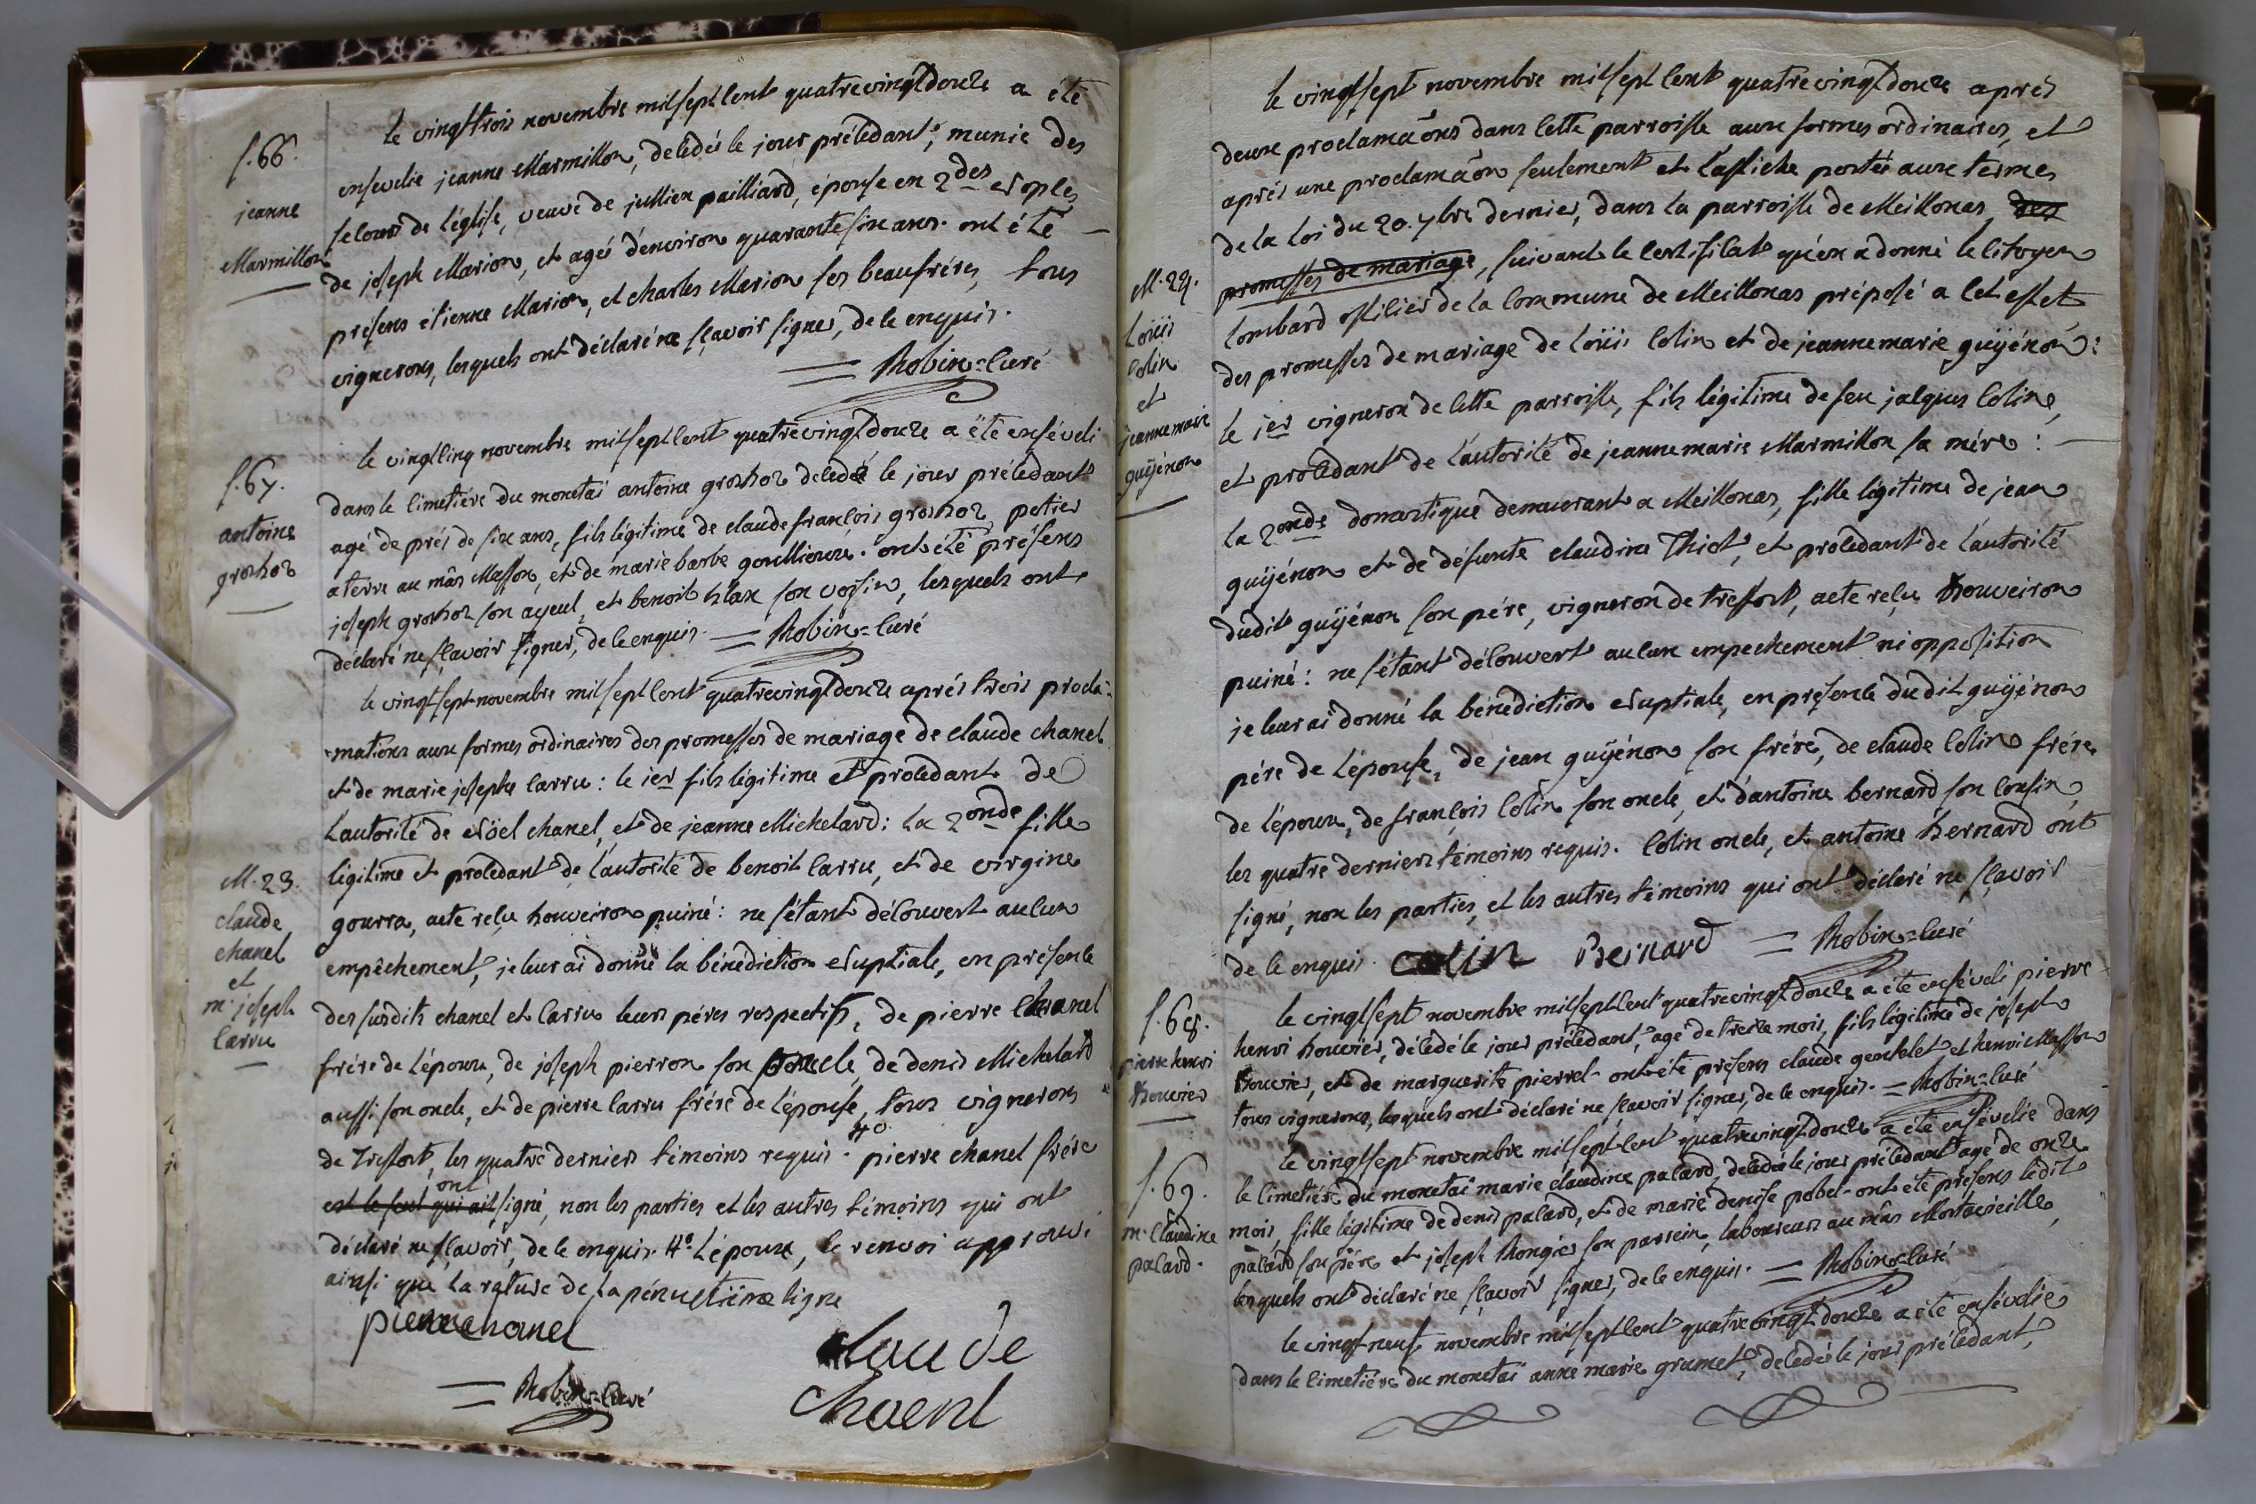 S. 66.
jeanne
Marmillon
le vingttrois novembre mil sept cent quatrevingtdouze a été
ensevelie jeanne Marmillon, décédée le jour précédant, munie des
secours de l'église, veuve de jullien pailliard, épouse en 2des noples
de joseph Marion, et agée d'environ quarante six ans. ont été
présens étienne Marion, et charles Marion ses beaufréres, tous
vignerons, lesquels ont déclaré ne sçavoir signer, de ce enquis.
= Robin=curé
S. 67.
antoine
groshoz
le vingtcinq novembre mil sept cent quatrevingtdouze a été enséveli
dans le cimetiére du monetai antoine groshoz décédé le jour précédant
agé de prés de six ans, fils légitime de claude françois groshoz, potier
a terre au mâs Masson, et de marie barbe goullioux. ont été présens
joseph groshoz son ayeul, et benoit blax son voisin, lesquels ont
déclaré ne sçavoir signer, de ce enquis. = Robin=curé
M. 23.
claude
chanel
et
m. joseph
carru
le vingtsept novembre mil sept cent quatrevingtdouze aprés trois procla=
=mations aux formes ordinaires des promesses de mariage de claude chanel
et de marie josephe carru : le ier fils légitime et procedant de
l'autorité de Nöel chanel, et de jeanne Michelard : la 2onde fille
légitime et procedant de l'autorité de benoit carru, et de virgine
gourra, acte reçu houveiron puiné : ne s'étant découvert aucun
empêchement, je leur ai donné la bénédiction Nuptiale, en présence
des susdits chanel et carru leurs péres respectifs, de pierre chanel
frére de l'époux, de joseph pierron son oncle, de denis Michelard
aussi son oncle, et de pierre carru frére de l'épouse, tous vignerons
de Treffort, les quatre derniers témoins requis. # pierre chanel frére
est le seul qui ait ont signé, non les parties et les autres témoins qui ont
déclaré ne sçavoir, de ce enquis. # l'époux, le renvoi approuvé
ainsi que la rature de la pénultiéme ligne
pierre chanel
claude
chaenl
= Robin=curé
M. 24.
Loüis
Colin
et
jeanne marie
guÿénon
le vingtsept novembre mil sept cent quatrevingtdouze aprés
deux proclamãons dans cette parroisse aux formes ordinaires, et
aprés une proclamãon seulement et l'affiche portée aux termes
de la loi du 20. 7bre dernier, dans la parroisse de Meillonas, des
promesses de mariage, suivant le certificat qu'en a donné le citoyen
Lombard officier de la commune de Meillonas préposé a cet effet
des promesses de mariage de Loüis Colin et de jeanne marie guÿénon :
le ier vigneron de cette parroisse, fils légitime de feu jacques Colin,
et procedant de l'autorité de jeanne marie Marmillon sa mére :
la 2onde domestique demeurant a Meillonas, fille légitime de jean
guÿénon et de défunte claudine Thiot, et procedant de l'autorité
dudit guÿénon son pére, vigneron de treffort, acte reçu houveiron
puiné : ne s'étant découvert aucun empechement ni opposition
je leur ai donné la bénédiction Nuptiale, en présence dudit guÿénon
pére de l'épouse, de jean guÿénon son frére, de claude Colin frére
de l'époux, de françois Colin son oncle, et d'antoine bernard son cousin,
les quatre derniers témoins requis. Colin oncle, et antoine bernard ont
signé, non les parties, et les autres témoins qui ont déclaré ne sçavoir
de ce enquis. Colin Bernard = Robin=curé
S. 68.
pierre henri
bouvier
le vingtsept novembre mil sept cent quatrevingtdouze a été enséveli pierre
henri bouvier, décédé le jour précédant, agé de treize mois, fils légitime de joseph
bouvier, et de marguerite pierrel. ont été présens claude genselet et henri Masson
tous vignerons, lesquels ont déclaré ne sçavoir signer, de ce enquis. = Robin=curé
S. 69.
m. claudine
palard.
le vingtsept novembre mil sept cent quatrevingtdouze a été ensévelie dans
le cimetiére du monetai marie claudine palard, décédée le jour précédant agé de onze
mois, fille légitime de denis palard, et de marie denise pobel. ont été présens ledit
palard son pére et joseph Rongier son parrein, laboureurs au mâs Montacreille,
lesquels ont déclaré ne sçavoir signer, de ce enquis. = Robin=curé
le vingt neuf novembre mil sept cent quatrevingtdouze a été ensévelie
dans le cimetiére du monetai anne marie grumet, décédée le jour précédant,